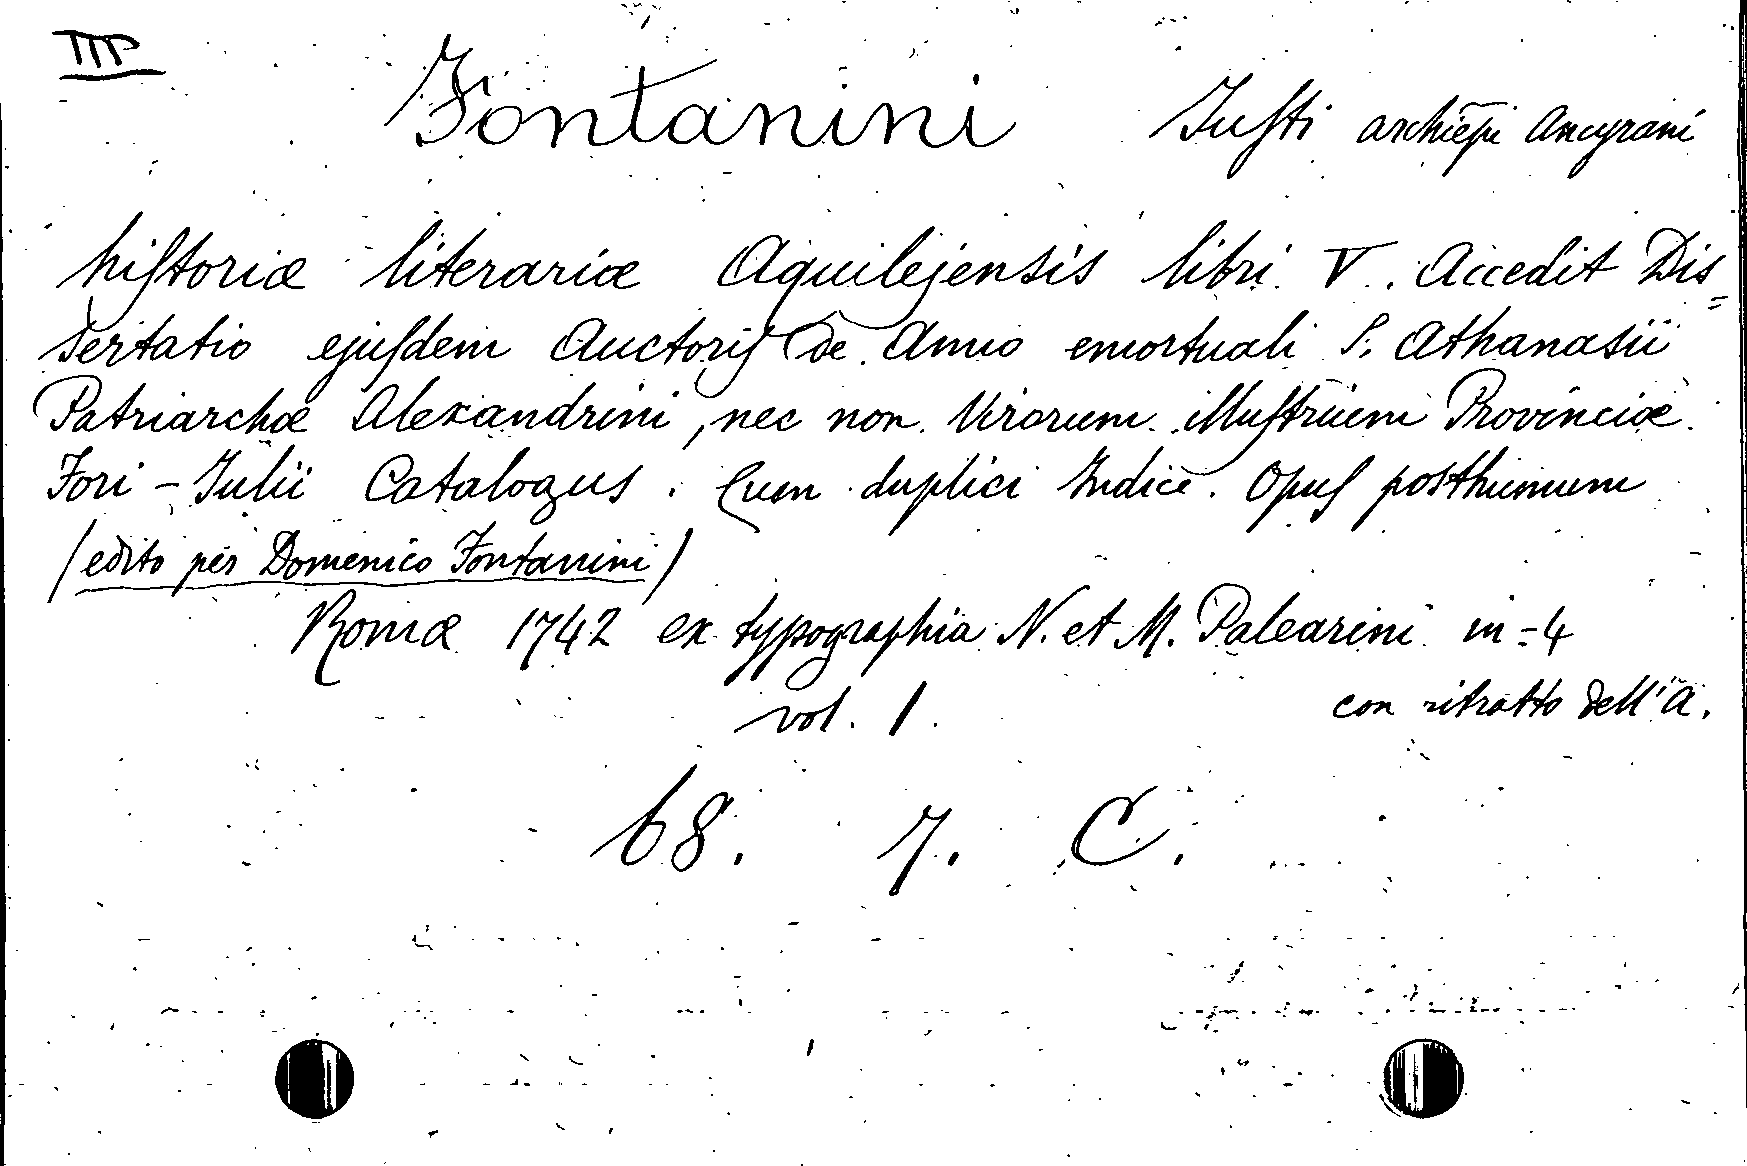 Fontanini Iuſti archiēpi Ancyrani
hiſtoriæ literariæ Aquilejensis libri V. Accedit Dis=
sertatio ejuſdem Auctoriſ de Anno emortuali S. Athanasii
Patriarchæ Alexandrini, nec non Virorum illuſtrium Provinciæ
Fori-Iulii Catalogus. Cum duplici Indice. Opuſ posthumum
(edito per Domenico Fontanini)
Romæ 1742 ex typographia N. et M. Palearini in=4
vol. 1. con ritratto dell'A.
68. 7. C.